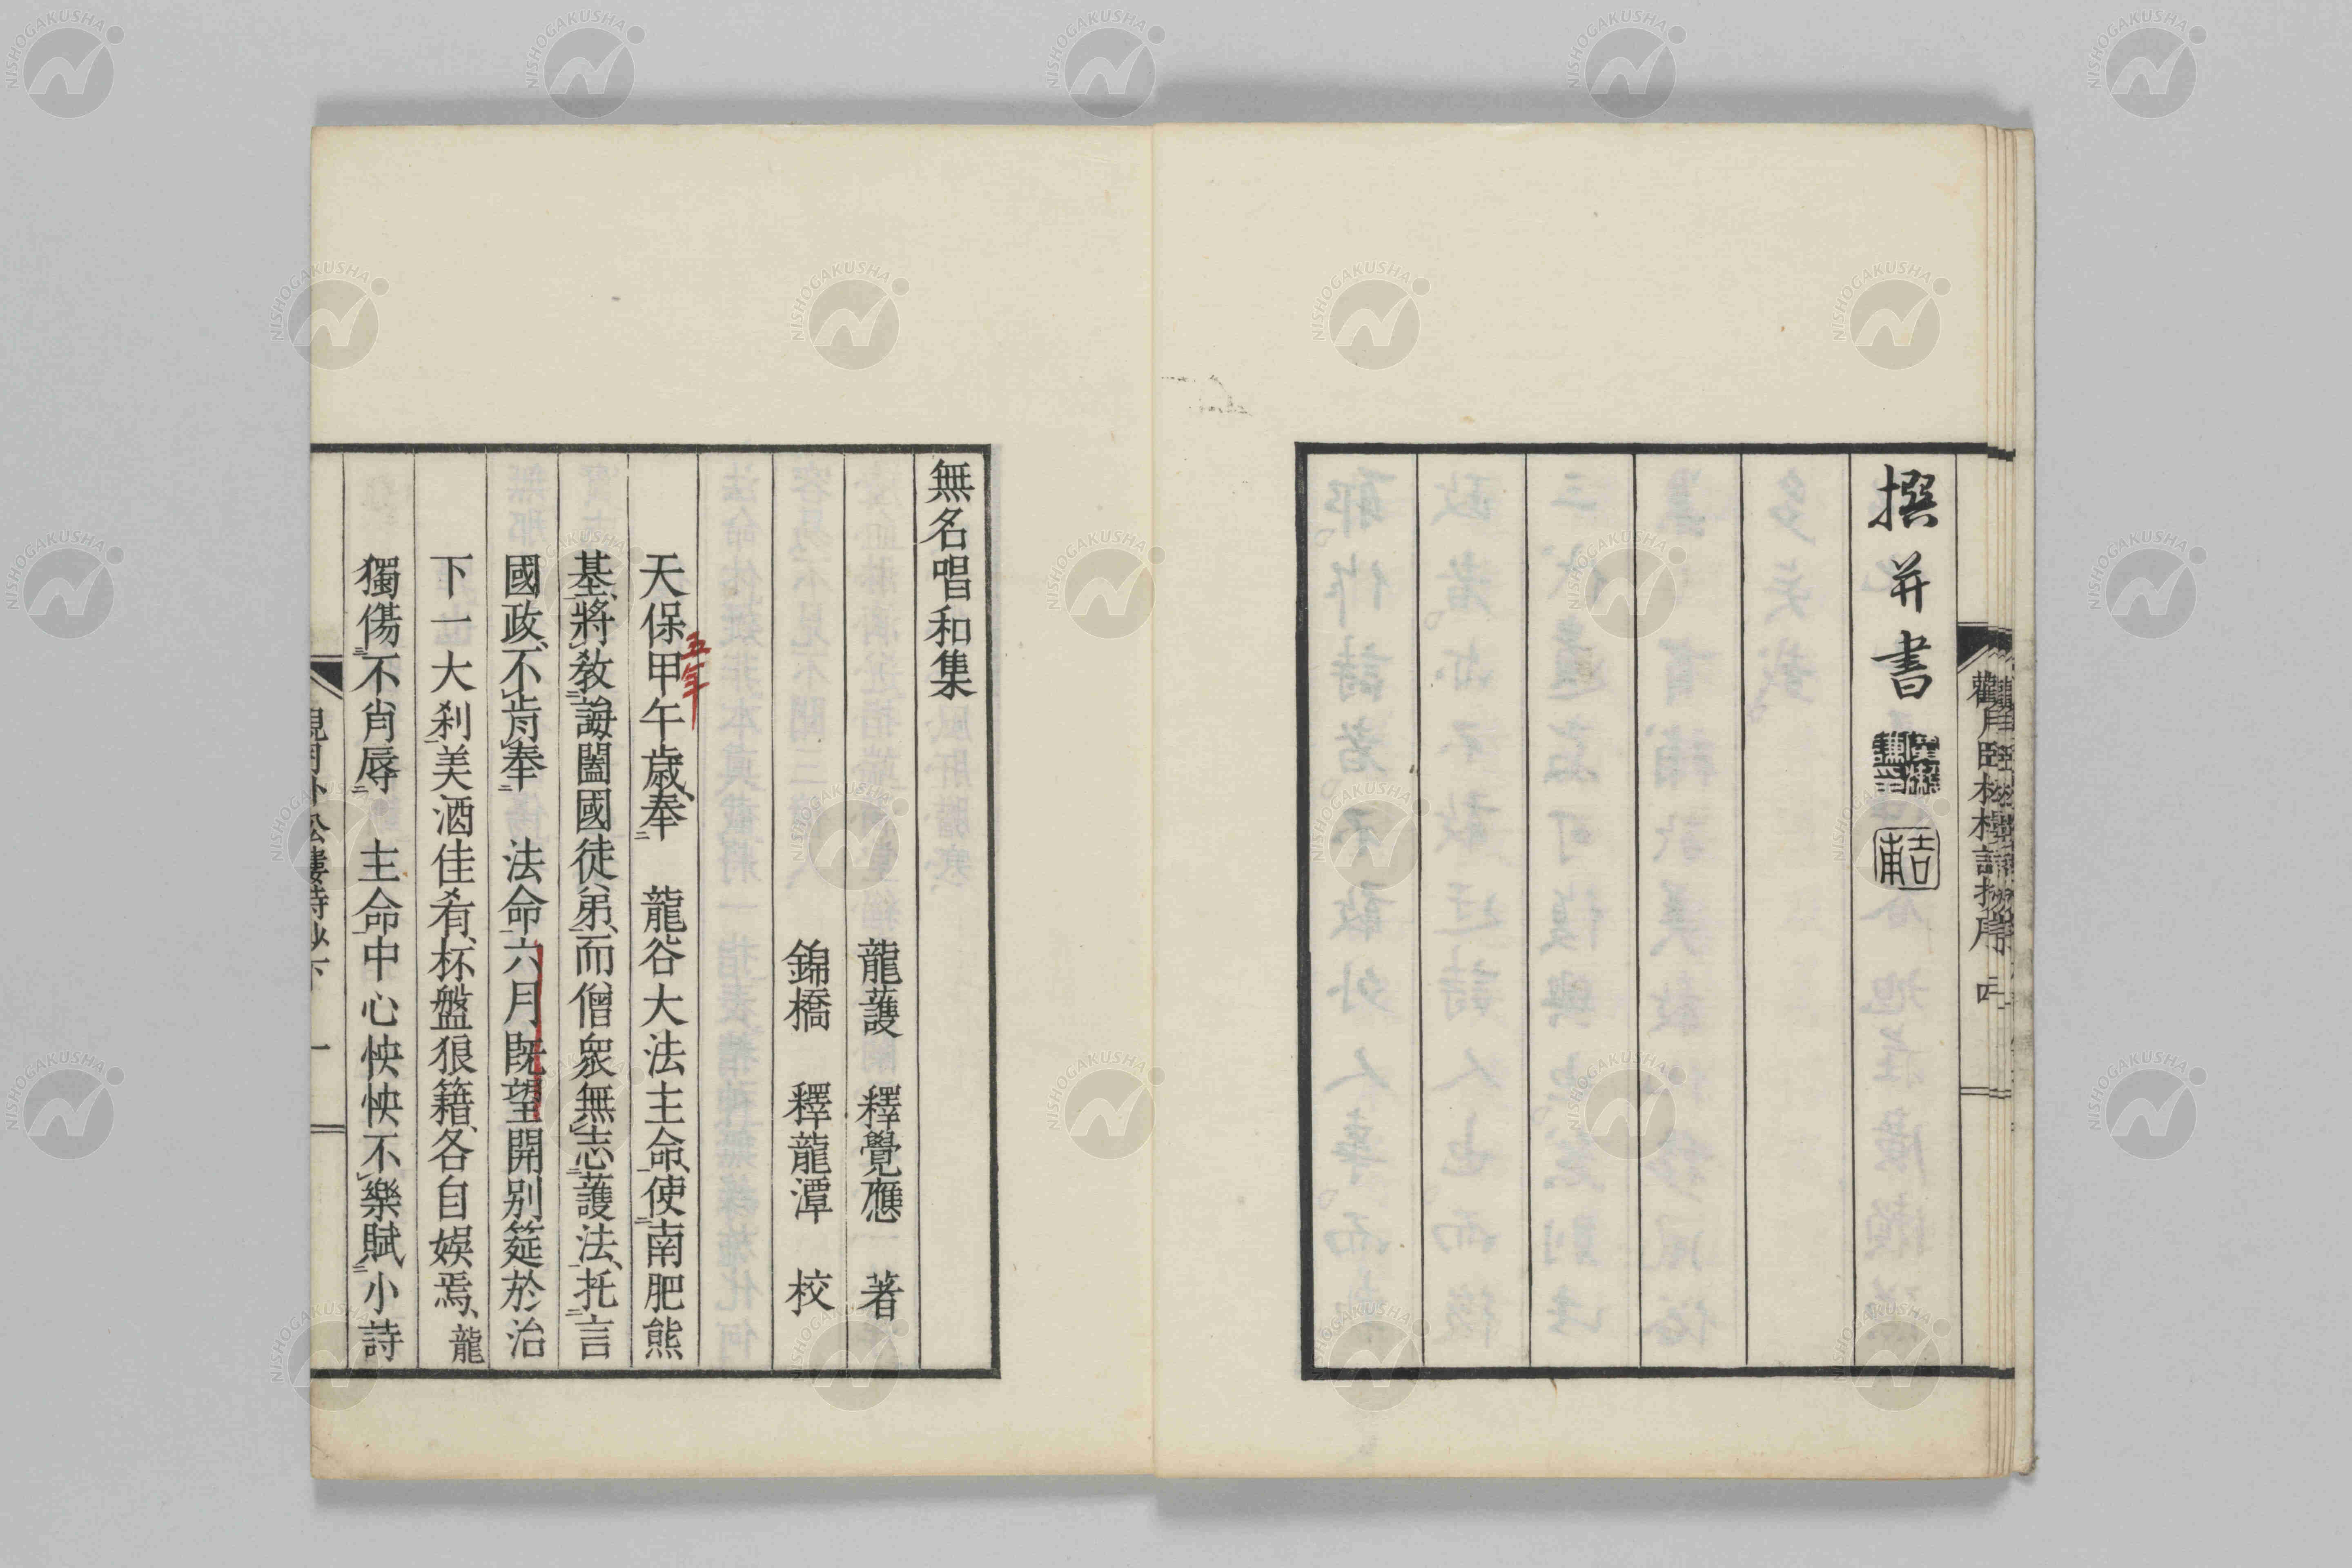 撰并書
觀月臥松樓詩抄序 四
無名唱和集
龍護 釋覺應 著
錦橋 釋龍潭 校
天保甲午歲、奉 龍谷大法主命、使南肥熊
五年
基、將教誨闔國徒弟、而僧衆無志護法、托言
國政、不肯奉 法命、六月既望開別筵於治
下一大刹、美酒佳肴、杯盤狼籍、各自娛焉、龍
獨傷不肖辱 主命、中心怏怏不樂、賦小詩
觀月臥松樓詩抄下 一
NISHOGAKUSHA